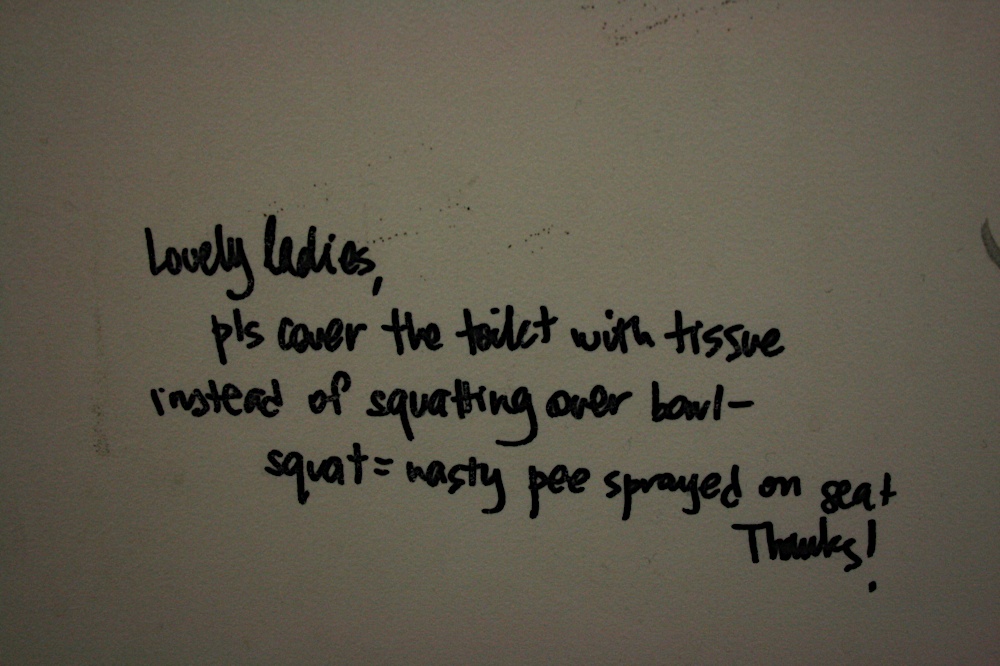 Lovely ladies,
pls cover the toilet with tissue
instead of squatting over bowl-
squat = nasty pee sprayed on seat
Thanks!